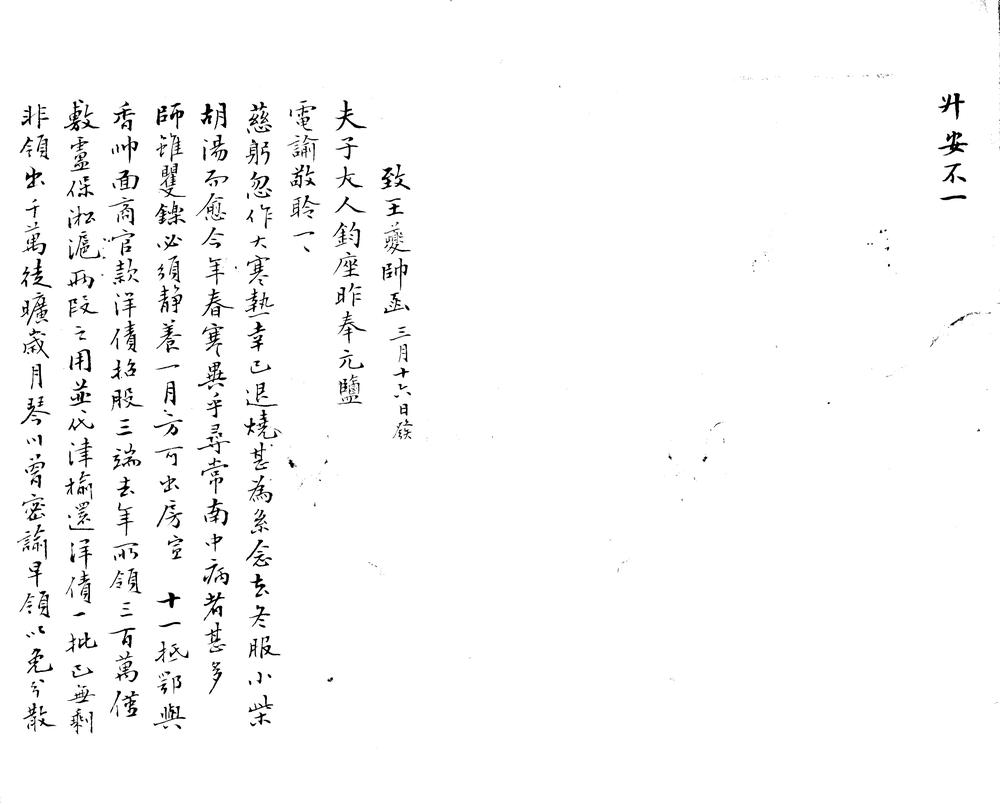 升安不一
致王夔帥函 三月十六日發
夫子大人鈞座昨奉元鹽
電諭敬聆一、
慈躬忽作大寒熱幸已退燒甚為系念去冬服小柴
胡湯而愈今年春寒異乎尋常南中病者甚多
師雖矍鑠必須靜養一月方可出房 十一抵鄂與
香帥面商官款洋債招股三端去年所領三百萬僅
敷盧保淞滬兩段之用並代津榆還洋債一批已無剩
非領出千萬徒曠歲月琴川曾密諭早領以免分散